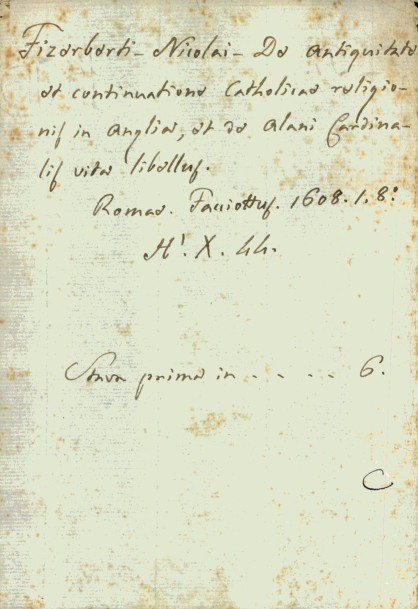 Fizerberti - Nicolai - De Antiquitate
et continuatione Catholicae religio-
nis in Angliae, et de Alani Cardina-
lis vita libellus.
Romae. Facciottus. 1608. 1. 8º
H'. X. 44.
prima in - - - - 6.
C